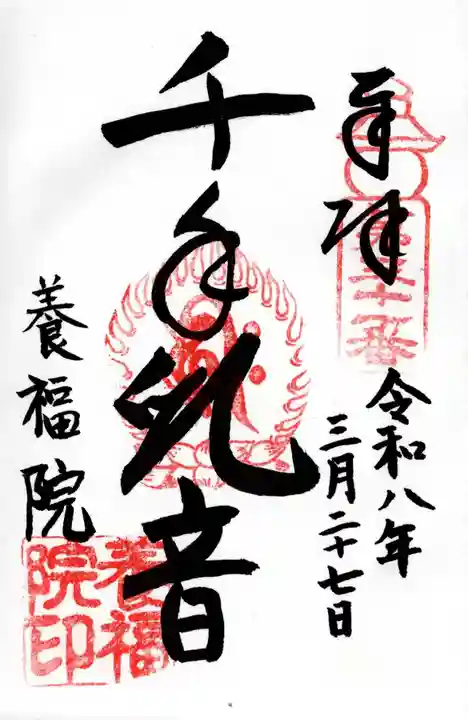 奉拝
令和八年
三月二十七日
千手観音
養福院
養福
院印